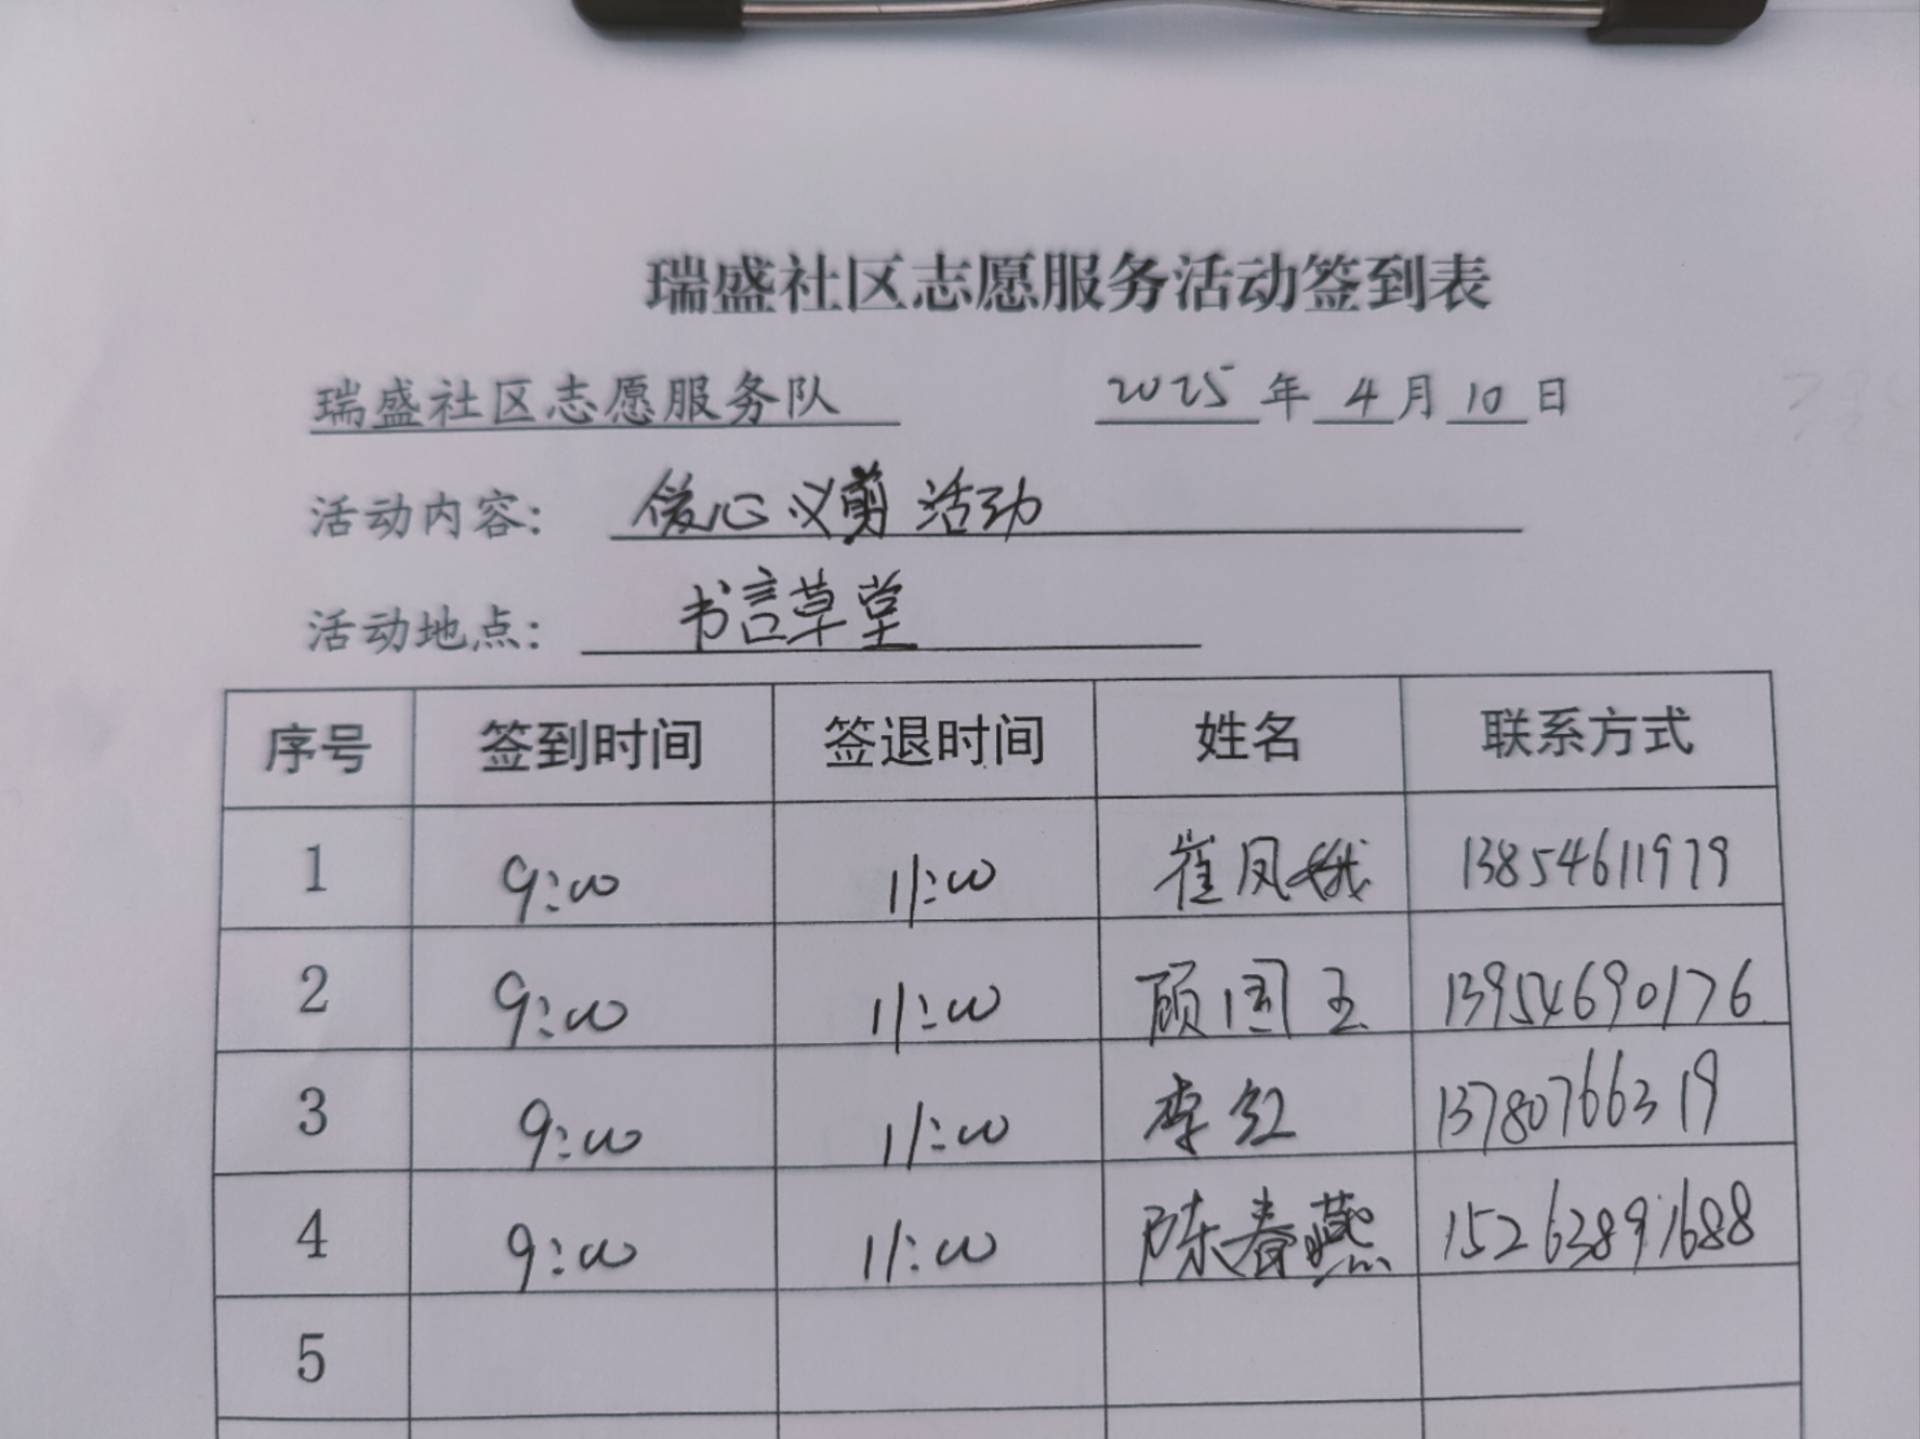 瑞盛社区志愿服务活动签到表
瑞盛社区志愿服务队 2025年4月10日
活动内容: 爱心义剪活动
活动地点: 书言草堂
序号 签到时间 签退时间 姓名 联系方式
1 9:00 11:00 崔凤娥 13854611979
2 9:00 11:00 顾国玉 13954690176
3 9:00 11:00 李红 13780766319
4 9:00 11:00 陈春燕 15263891688
5